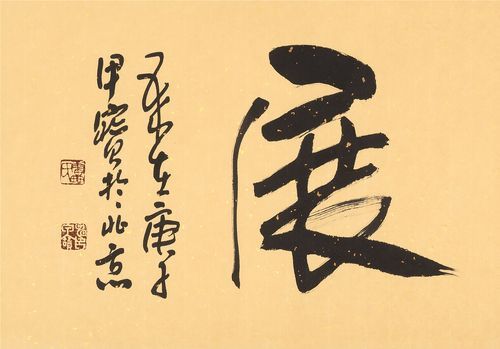 展
歲在庚子
甲寶於北京